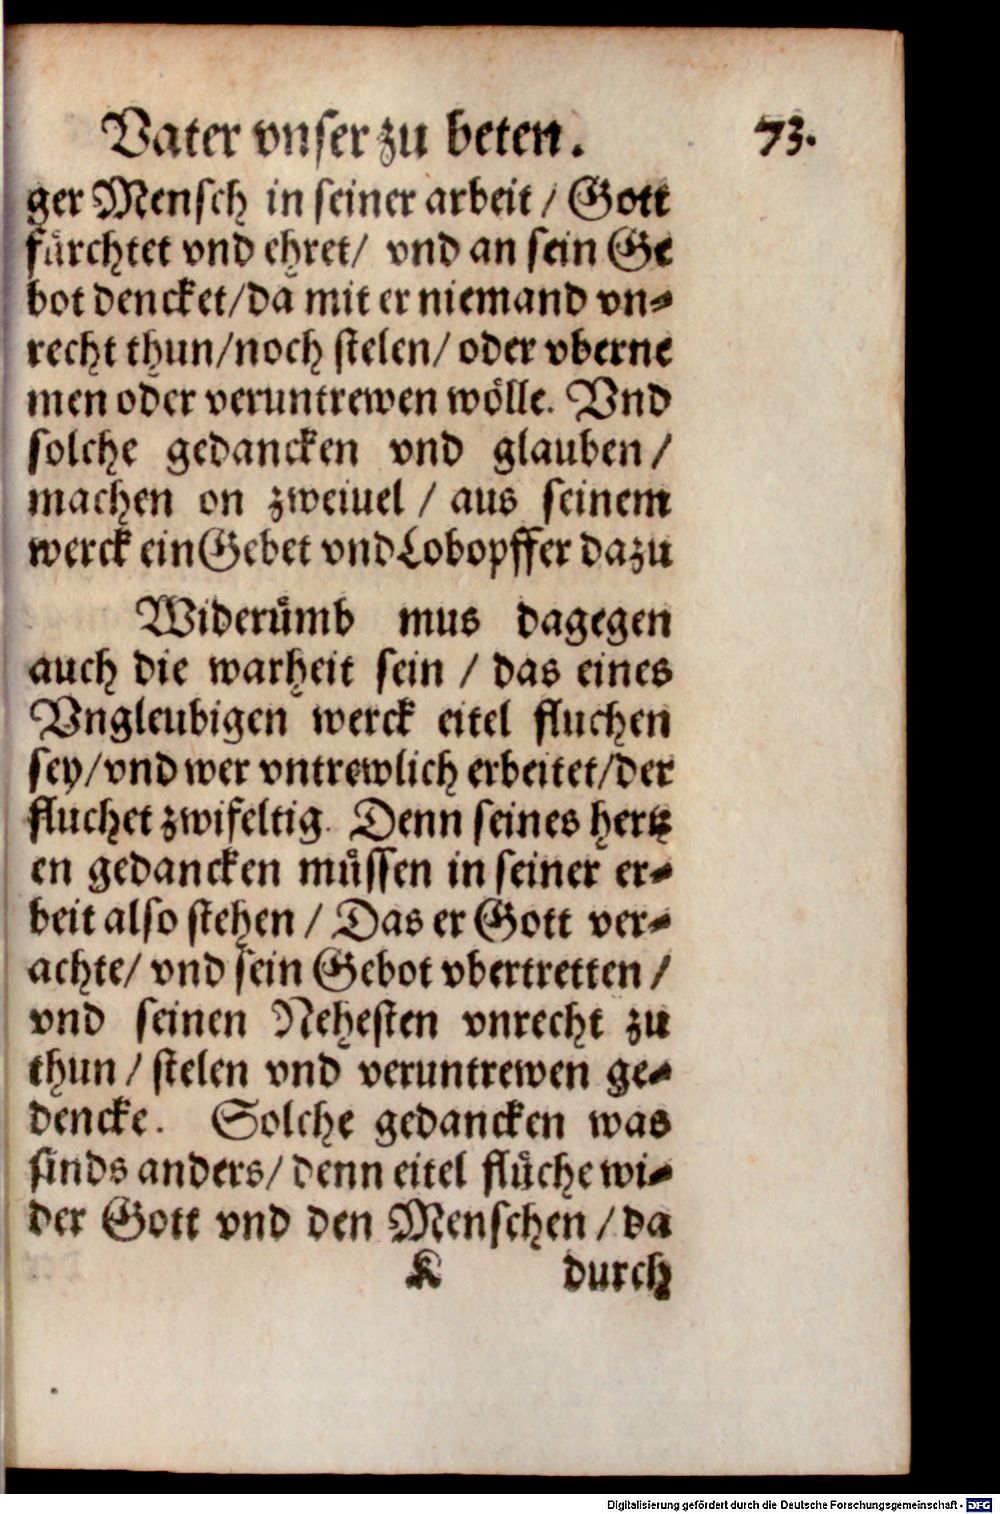 Vater vnser zu beten. 73.
ger Mensch in seiner arbeit / Gott
fürchtet vnd ehret/ vnd an sein Ge
bot dencket/da mit er niemand vn⸗
recht thun/noch stelen/ oder vberne
men oder veruntrewen wölle. Vnd
solche gedancken vnd glauben /
machen on zweiuel / aus seinem
werck ein Gebet vnd Lobopffer dazu
Widerůmb mus dagegen
auch die warheit sein / das eines
Vngleubigen werck eitel fluchen
sey/vnd wer vntrewlich erbeitet/der
fluchet zwifeltig. Denn seines hertz
en gedancken müssen in seiner er⸗
beit also stehen / Das er Gott ver⸗
achte/ vnd sein Gebot vbertretten /
vnd seinen Nehesten vnrecht zu
thun / stelen vnd veruntrewen ge⸗
dencke. Solche gedancken was
sinds anders/ denn eitel flüche wi⸗
der Gott vnd den Menschen / da
K durch
Digitalisierung gefördert durch die Deutsche Forschungsgemeinschaft - DFG